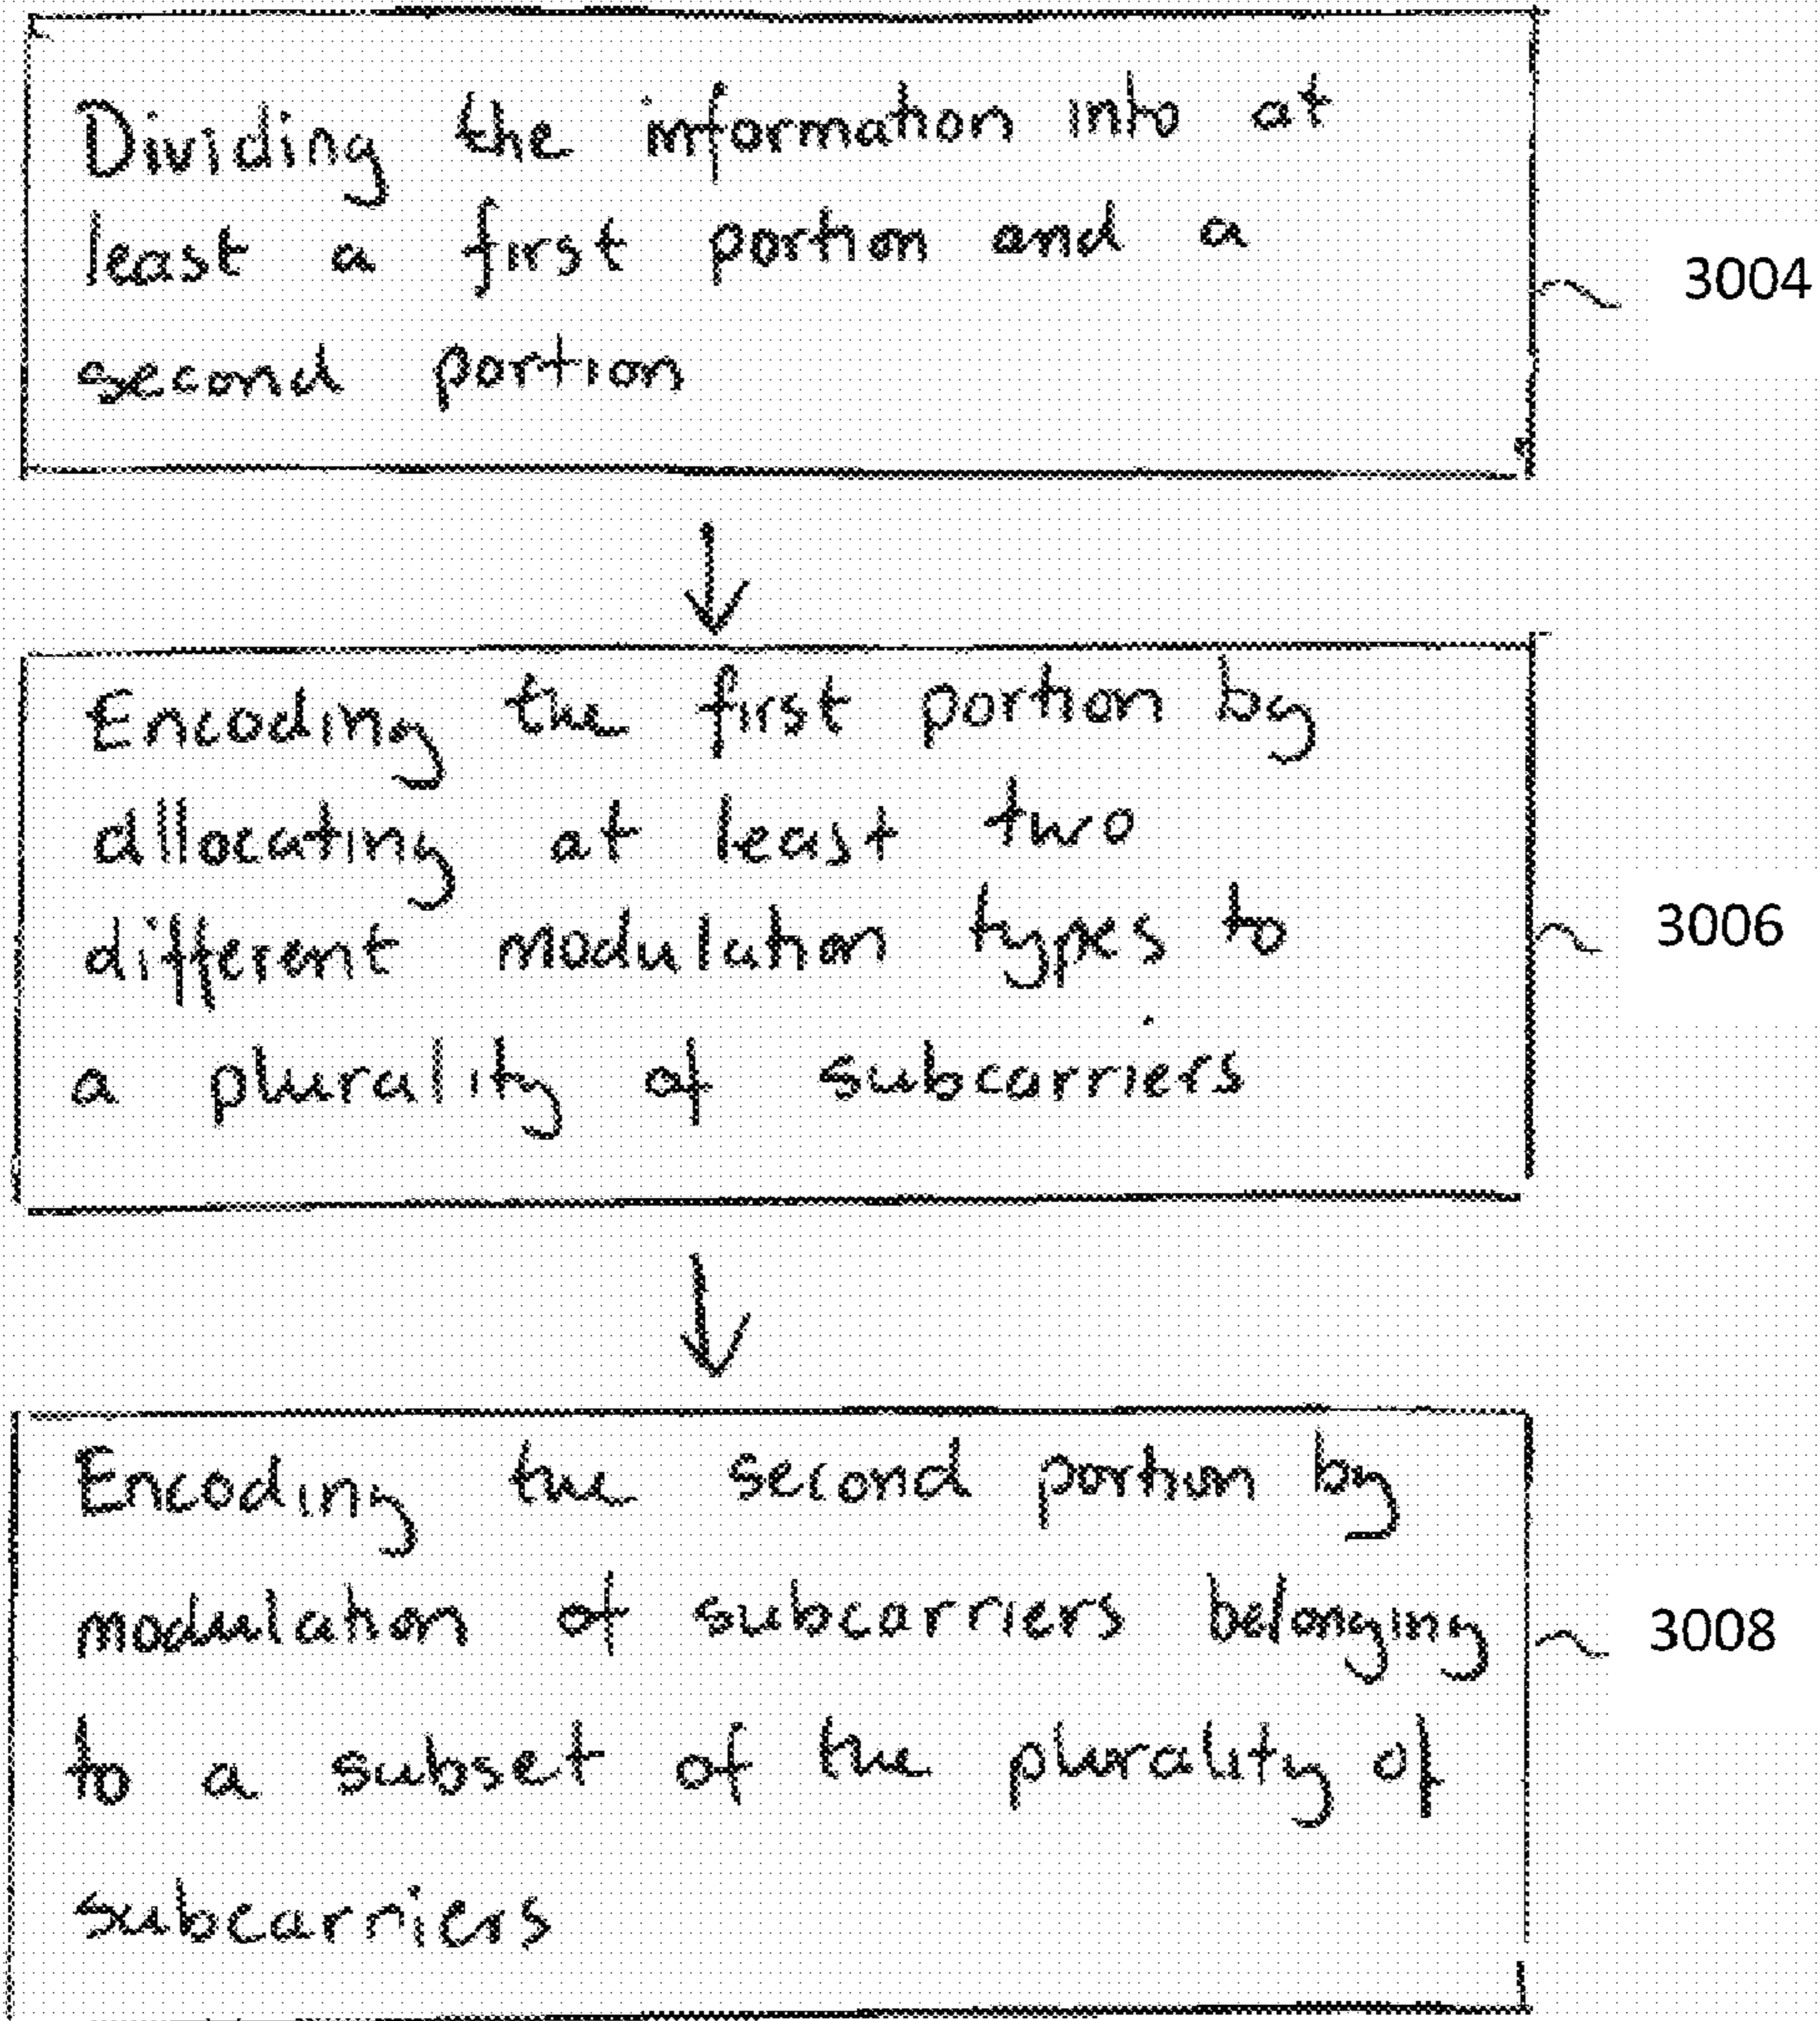 Dividing the information into at
least a first portion and a
second portion
3004
Encoding the first portion by
allocating at least two
different modulation types to
a plurality of subcarriers
3006
Encoding the second portion by
modulation of subcarriers belonging
to a subset of the plurality of
subcarriers
3008